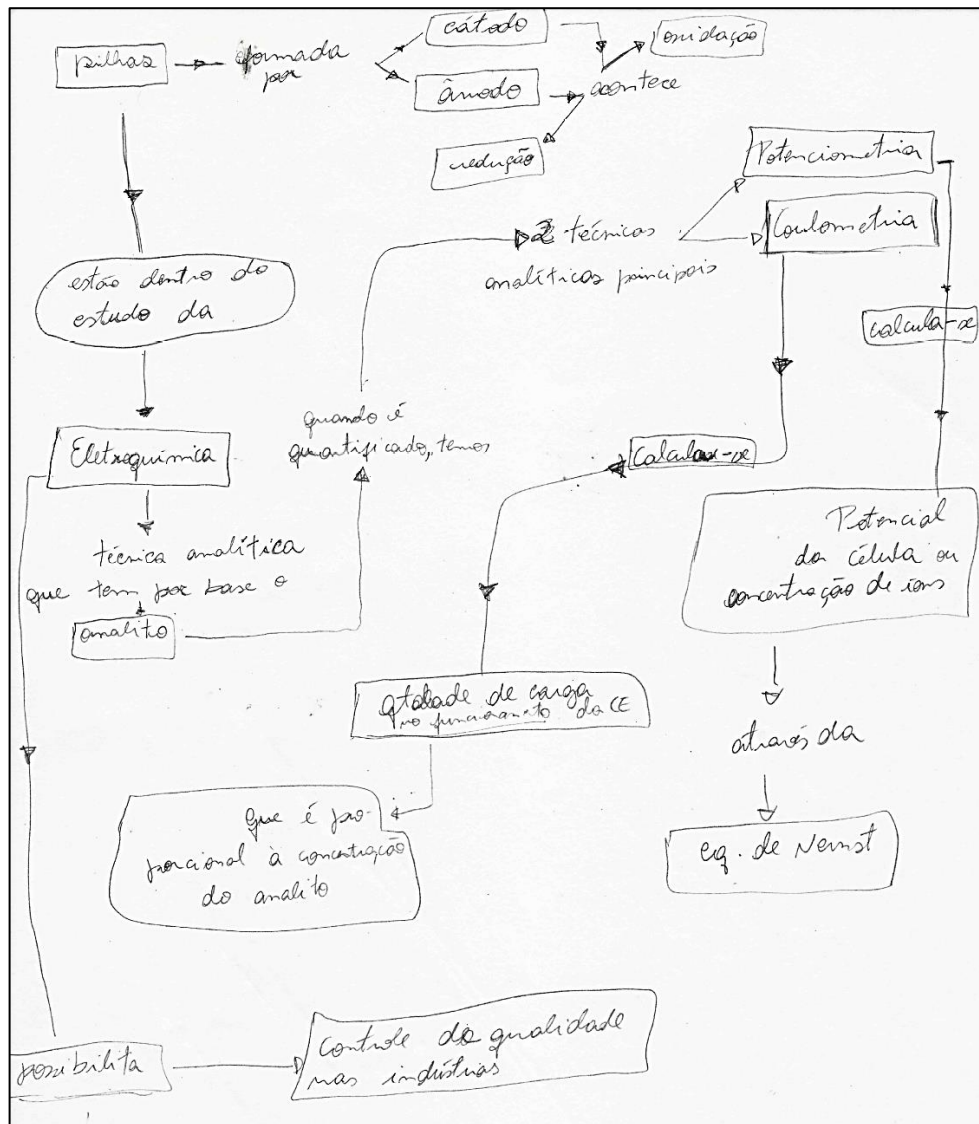 pilhas
formada
por
cátodo
ânodo
acontece
oxidação
redução
estão dentro do
estudo da
Eletroquímica
técnica analítica
que tem por base o
analito
quando é
quantificado, temos
2 técnicas
analíticas principais
Potenciometria
Coulometria
calcula-se
calcula-se
Potencial
da célula ou
concentração de íons
através da
eq. de Nernst
qtdade de carga
no funcionamento da CE
que é pro-
porcional à concentração
do analito
possibilita
Controle da qualidade
nas indústrias